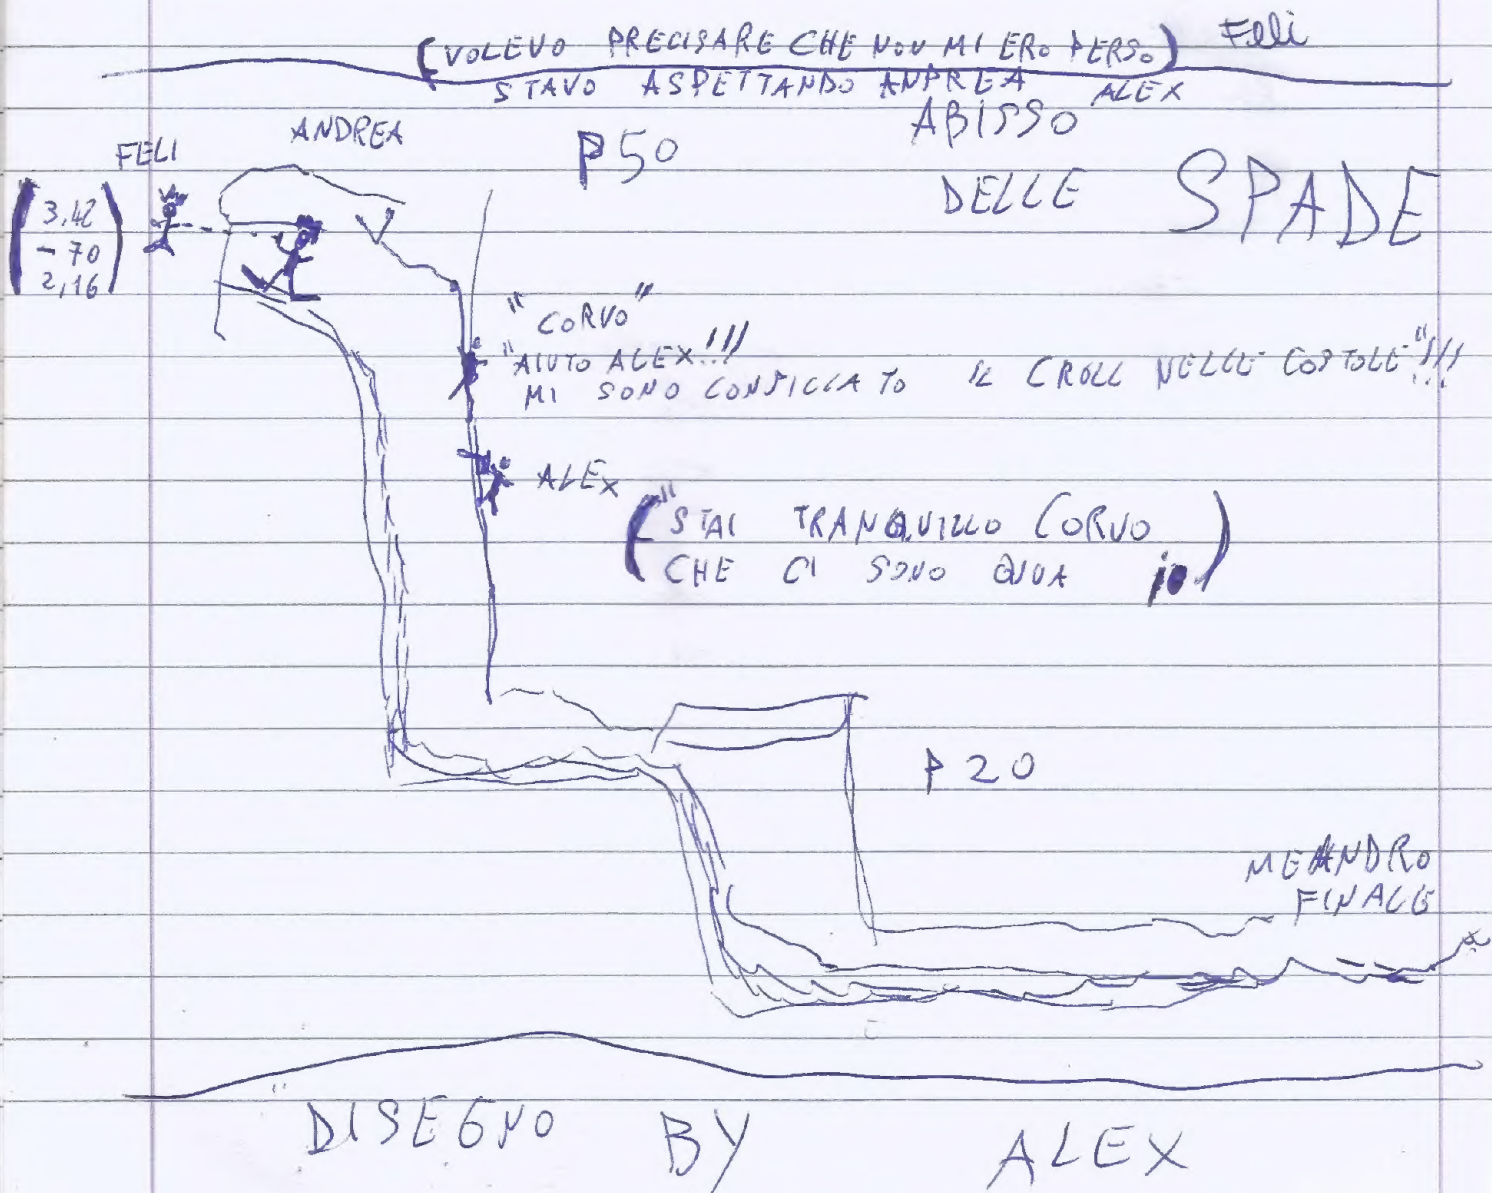 (VOLEVO PRECISARE CHE NON MI ERO PERSO) Feli
STAVO ASPETTANDO ANDREA ALEX
ABISSO
DELLE SPADE
FELI
ANDREA
P50
3,42
-70
2,16
"CORVO"
"AIUTO ALEX!!!
MI SONO CONFICCATO IL CROLL NELLE COSTOLE"!!!
ALEX
("STAI TRANQUILLO CORVO
CHE CI SONO QUUA io)
P20
MEANDRO
FINALE
DISEGNO BY ALEX